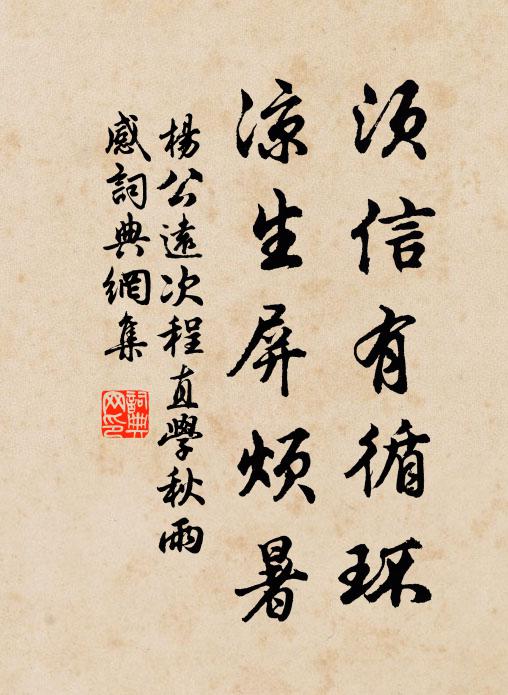 须信有循环
凉生屏烦暑
楊公遠次程直學秋雨
感詞典網集
詞典网印